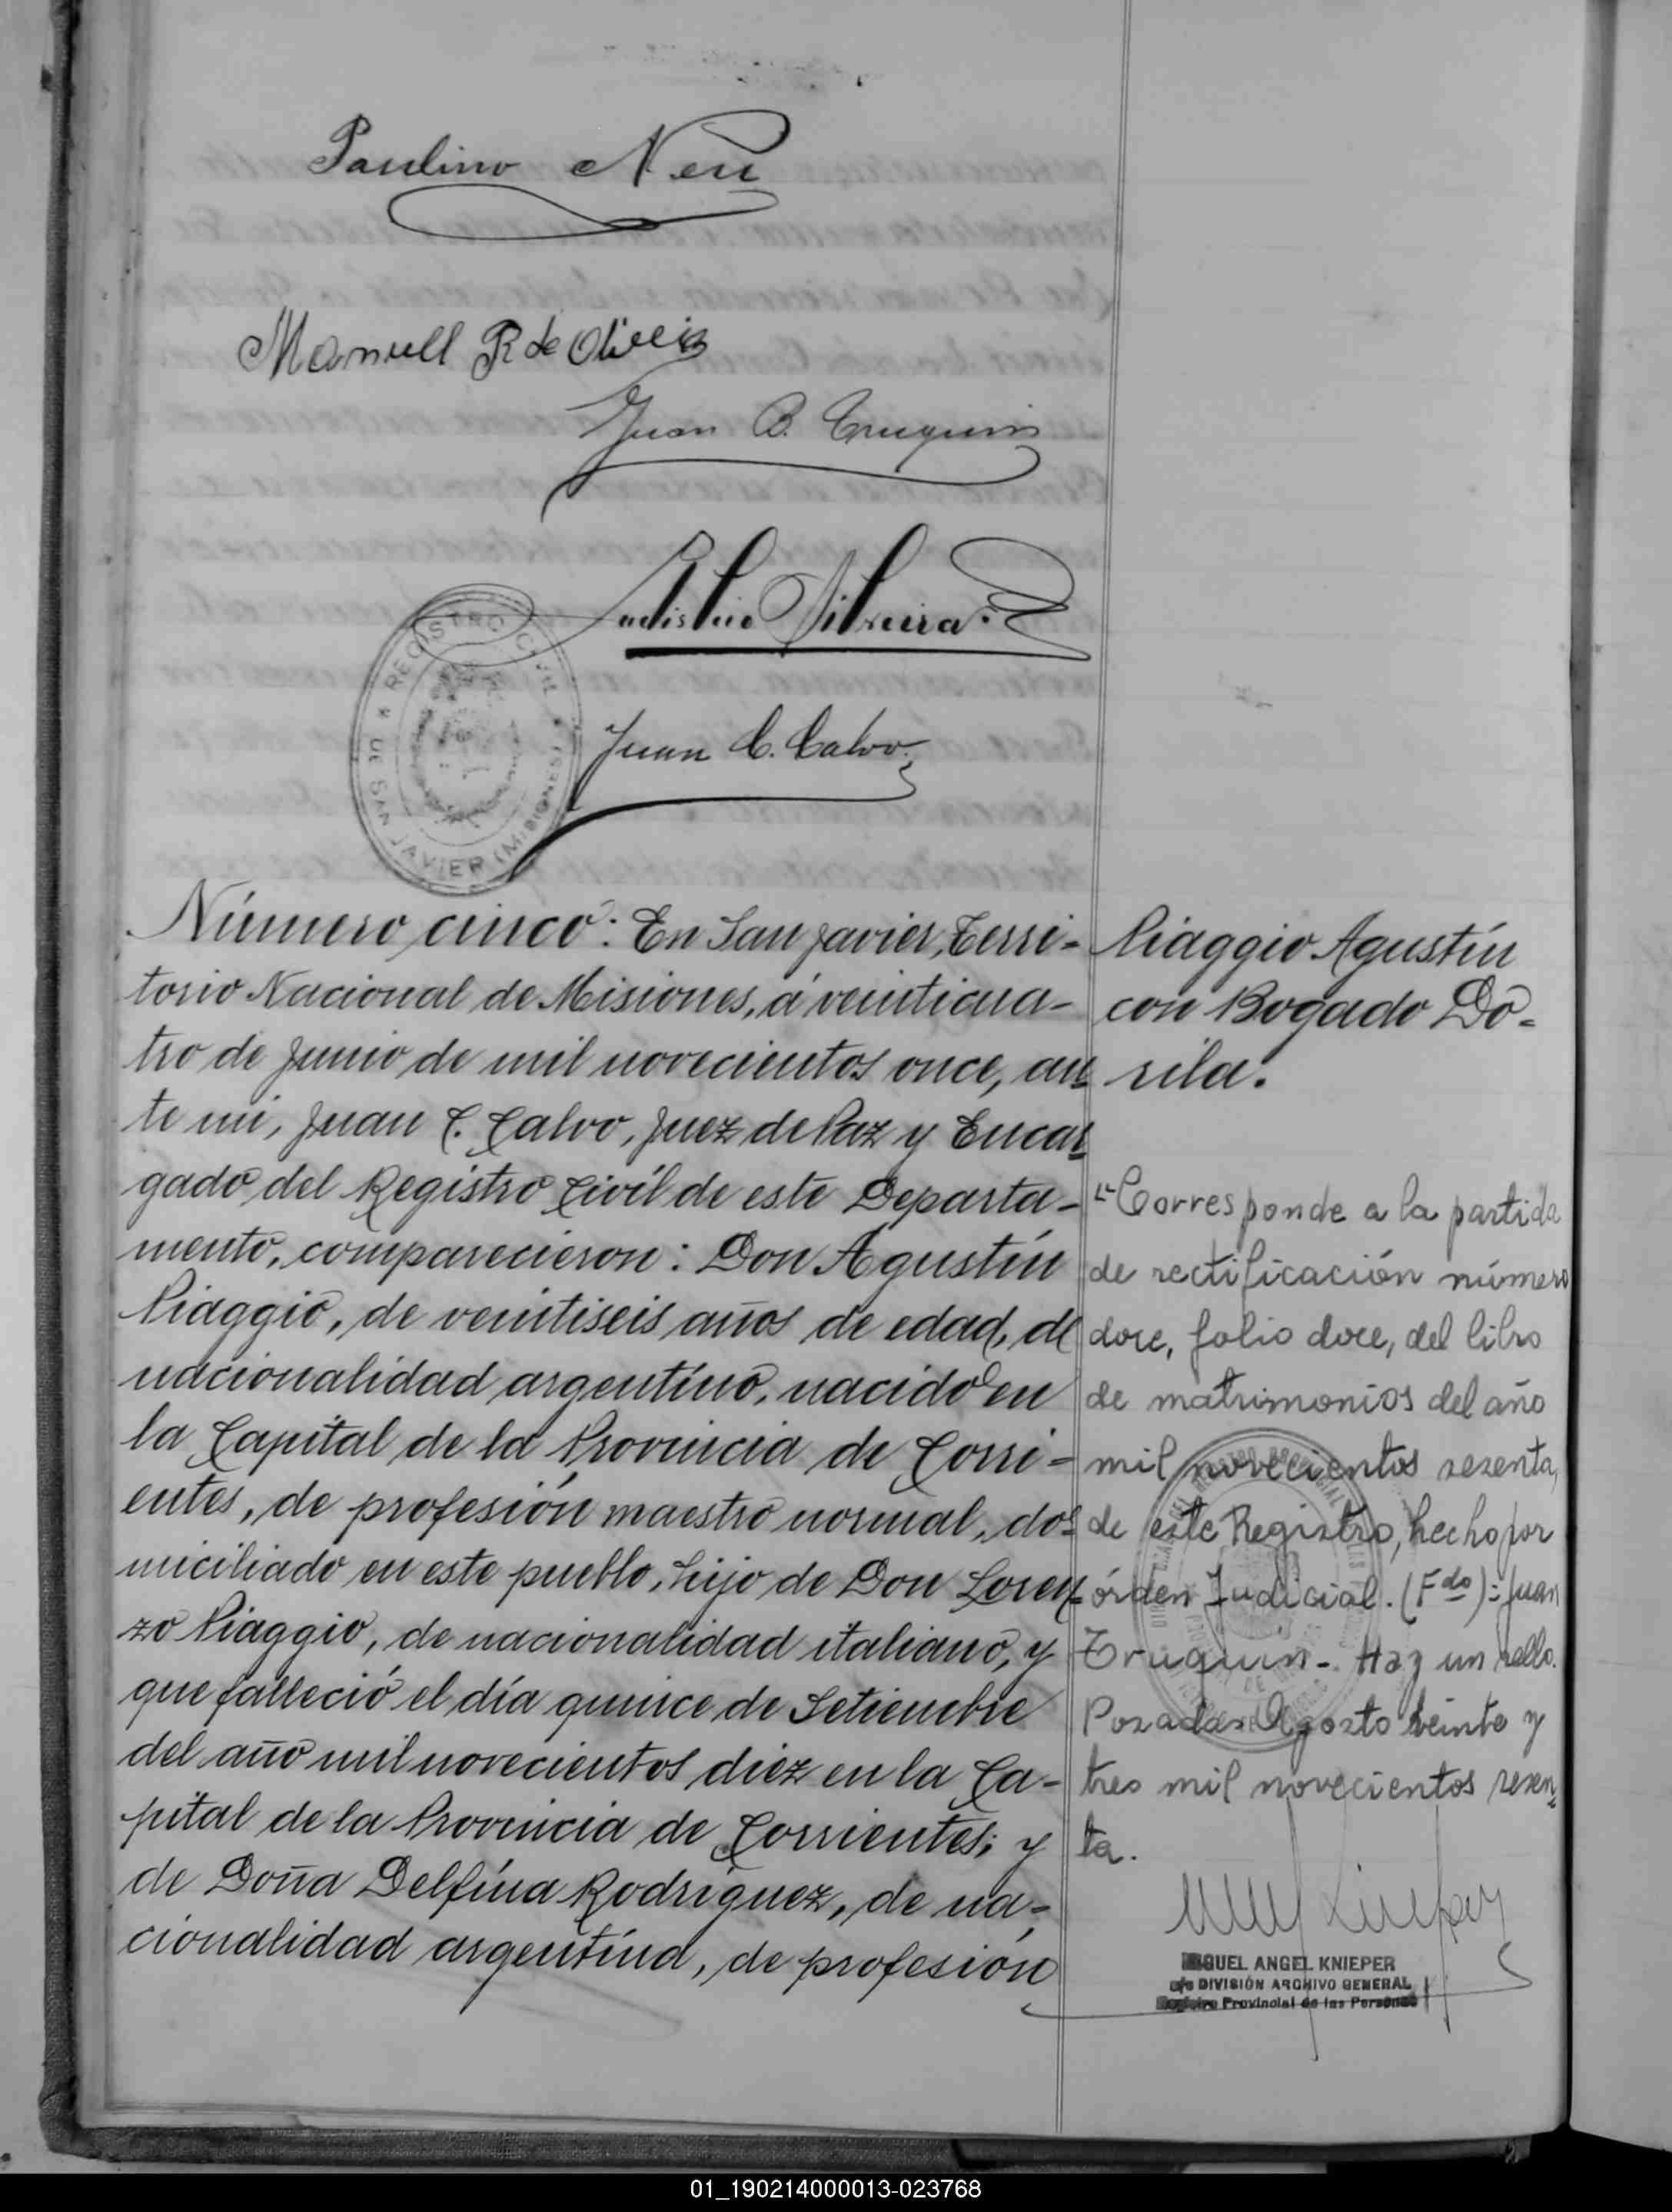 Paulino Neu
Manuell R de Oliveira
Juan B. Truquin
Ladislao Silveira
REGISTRO CIVIL
DE SAN JAVIER (MISIONES)
Juan C. Calvo
Número cinco: En San Javier, Terri-
torio Nacional de Misiones, á veinticua-
tro de Junio de mil novecientos once, an
te mi, Juan C. Calvo, Juez de Paz y Encar
gado del Registro Civil de este Departa-
mento, comparecieron: Don Agustín
Piaggio, de veintiseis años de edad, de
nacionalidad argentino, nacido en
la Capital de la Provincia de Corri-
entes, de profesión maestro normal, do-
miciliado en este pueblo, hijo de Don Loren-
zo Piaggio, de nacionalidad italiano, y
que falleció el día quince de Setiembre
del año mil novecientos diez en la Ca-
pital de la Provincia de Corrientes; y
de Doña Delfína Rodríguez, de na-
cionalidad argentína, de profesión
Piaggio Agustín
con Bogado Do-
rila.
"Corresponde a la partida
de rectificación número
doce, folio doce, del libro
de matrimonios del año
mil novecientos sesenta,
de este Registro, hecho por
órden Judicial. (Fdo): Juan
Truquin - Hay un sello.
Posadas Agosto veinte y
tres mil novecientos sesen
ta.
MIGUEL ANGEL KNIEPER
a/c DIVISIÓN ARCHIVO GENERAL
Registro Provincial de las Personas
01_190214000013-023768